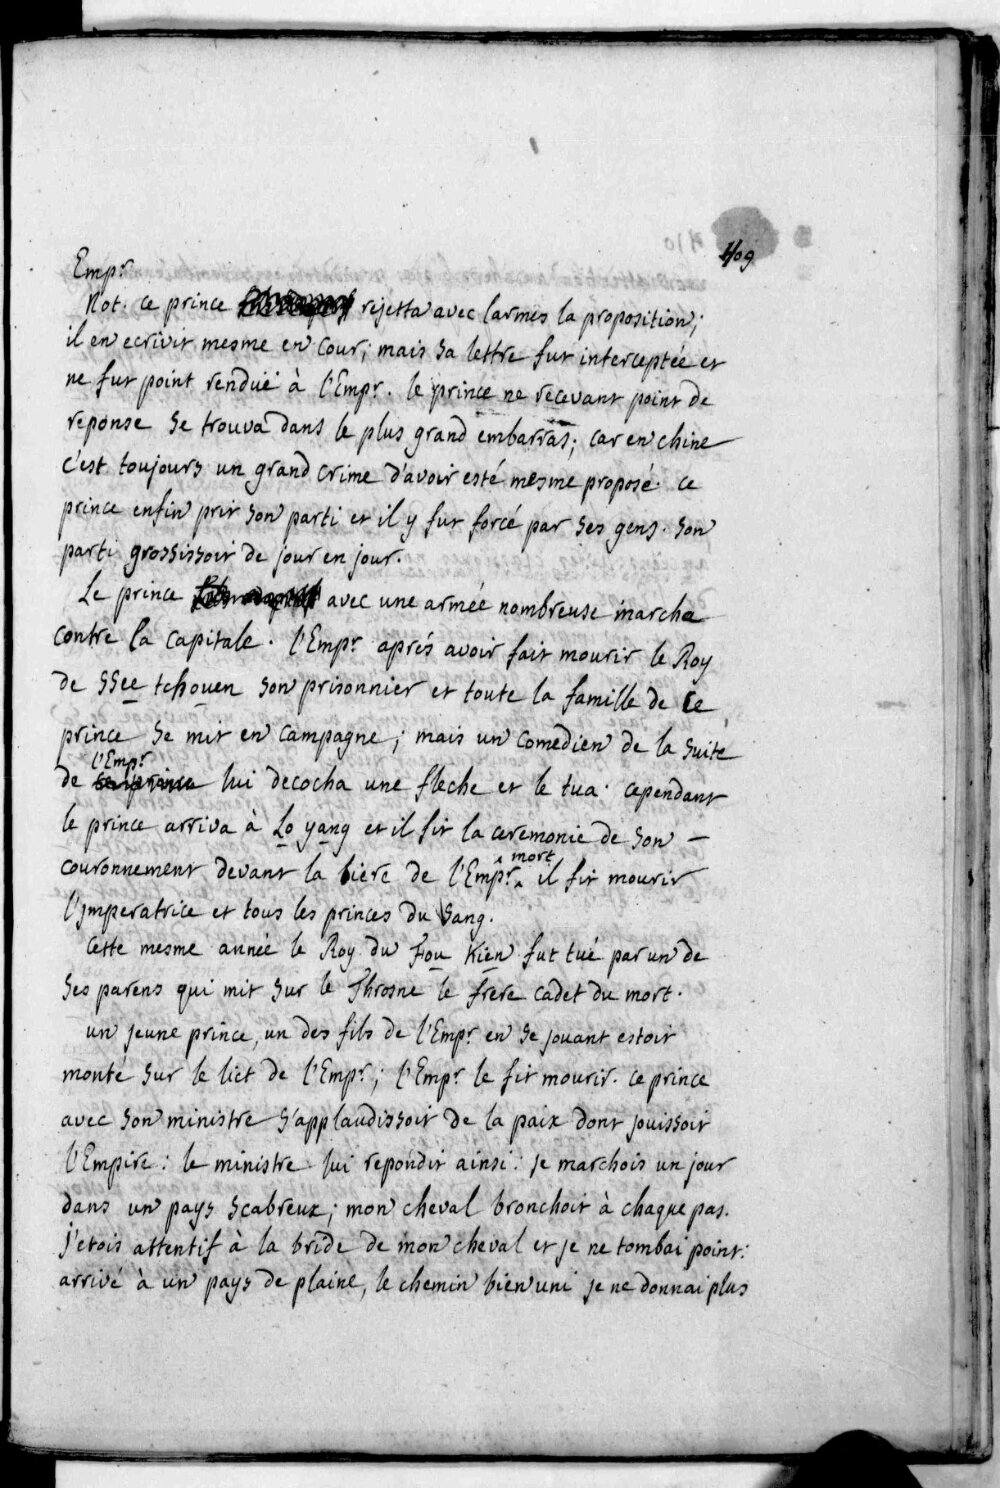 409
Empr
Not. ce prince rejetta avec larmes la proposition;
il en ecrivit mesme en cour; mais sa lettre fut interceptée et
ne fut point renduë à l'Empr. le prince ne recevant point de
reponse se trouva dans le plus grand embarras; car en chine
c'est toujours un grand crime d'avoir esté mesme proposé. ce
prince enfin prit son parti et il y fut forcé par ses gens. son
parti grossissoit de jour en jour.
Le prince avec une armée nombreuse marcha
contre la capitale. l'Empr aprés avoir fait mourir le Roy
de ssee tchouen son prisonnier et toute la famille de ce
prince se mit en campagne; mais un comedien de la suite
de l'Empr lui decocha une fleche et le tua. cependant
le prince arriva à Lo yang et il fit la ceremonie de son –
couronnement devant la biere de l'Empr mort. il fit mourir
l'Imperatrice et tous les princes du sang.
Cette mesme année le Roy du Fou Kien fut tué par un de
ses parens qui mit sur le Throsne le frere cadet du mort.
un jeune prince, un des fils de l'Empr en se jouant estoit
monté sur le lict de l'Empr; l'Empr le fit mourir. ce prince
avec son ministre s'applaudissoit de la paix dont jouissoit
l'Empire: le ministre lui repondit ainsi: je marchois un jour
dans un pays scabreux; mon cheval bronchoit à chaque pas.
j'etois attentif à la bride de mon cheval et je ne tombai point:
arrivé à un pays de plaine, le chemin bien uni je ne donnai plus